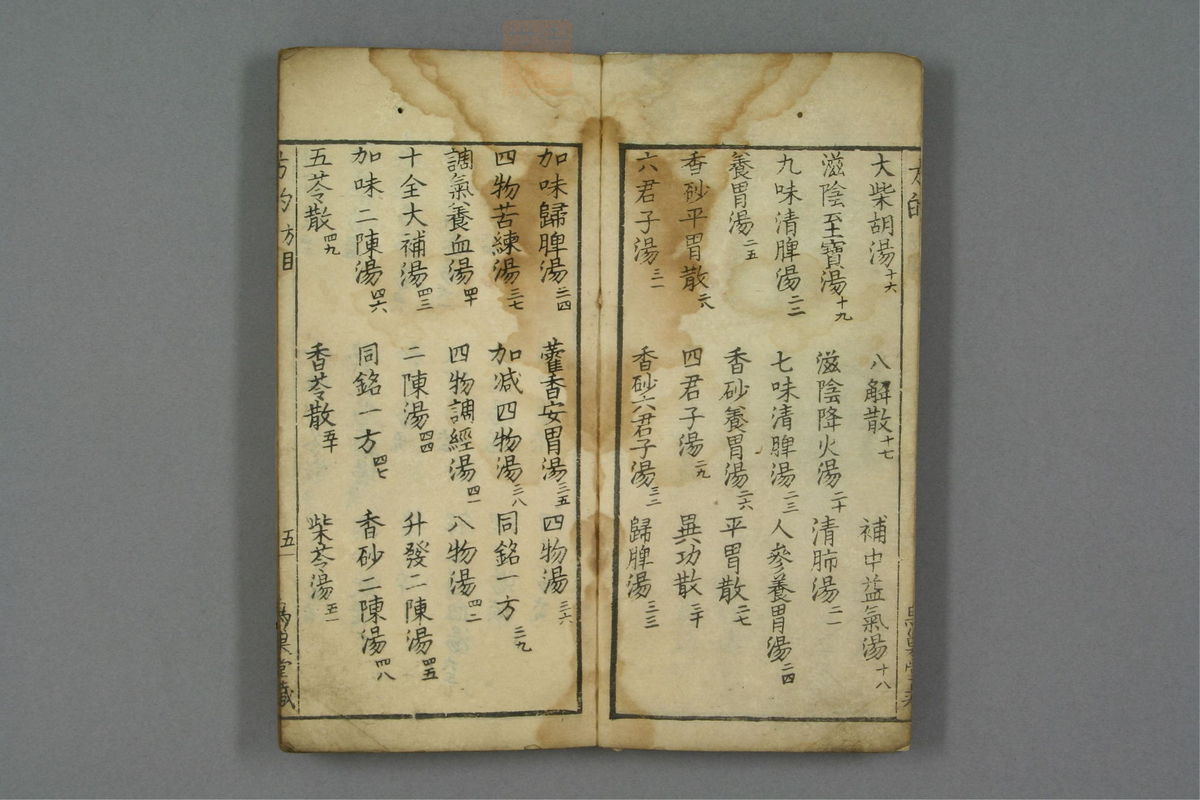 大柴胡湯十六 八解散十七 補中益氣湯十八
滋陰至寶湯十九 滋陰降火湯二十 清肺湯二一
九味清脾湯二二 七味清脾湯二三 人參養胃湯二四
養胃湯二五 香砂養胃湯二六 平胃散二七
香砂平胃散二八 四君子湯二九 異功散三十
六君子湯三一 香砂六君子湯三二 歸脾湯三三
加味歸脾湯三四 藿香安胃湯三五 四物湯三六
四物苦練湯三七 加減四物湯三八 同銘一方三九
調氣養血湯四十 四物調經湯四一 八物湯四二
十全大補湯四三 二陳湯四四 升發二陳湯四五
加味二陳湯四六 同銘一方四七 香砂二陳湯四八
五苓散四九 香苓散五十 柴苓湯五一
方的 方目 五